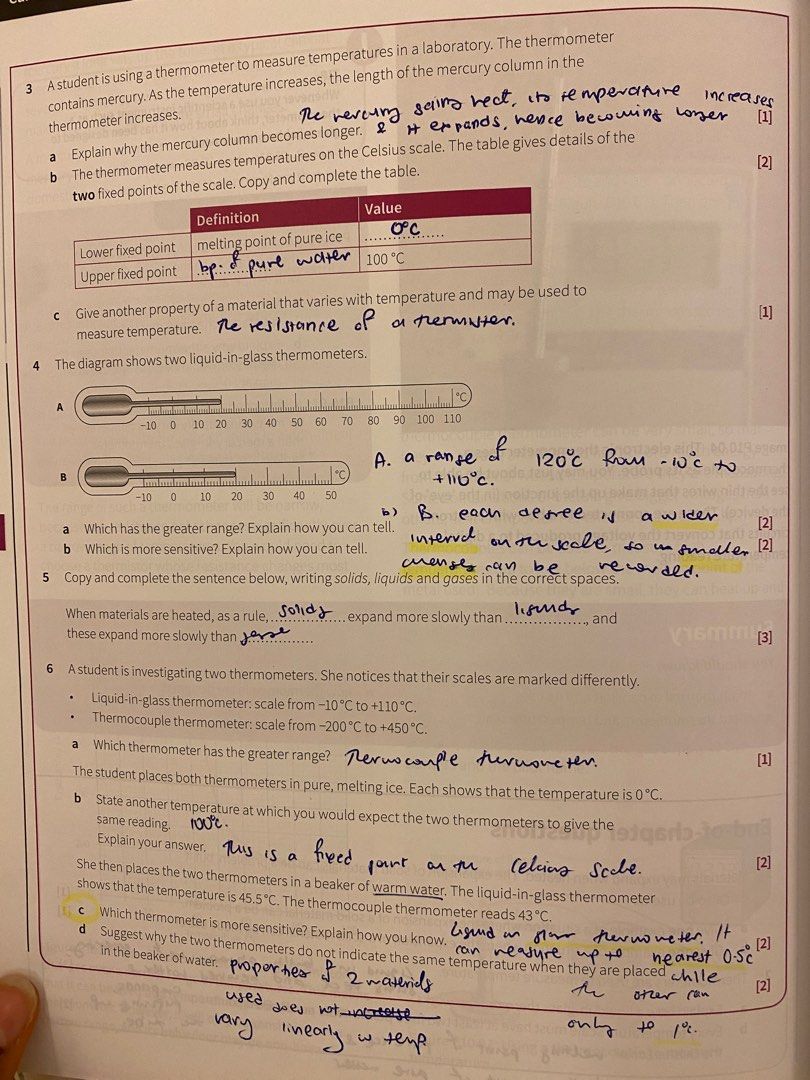 3 A student is using a thermometer to measure temperatures in a laboratory. The thermometer
contains mercury. As the temperature increases, the length of the mercury column in the
thermometer increases.
The mercury gains heat, its temperature increases
a Explain why the mercury column becomes longer. & it expands, hence becoming longer [1]
b The thermometer measures temperatures on the Celsius scale. The table gives details of the
two fixed points of the scale. Copy and complete the table. [2]
Definition Value
Lower fixed point melting point of pure ice 0°C
Upper fixed point bp: of pure water 100 °C
c Give another property of a material that varies with temperature and may be used to
measure temperature. The resistance of a thermister. [1]
4 The diagram shows two liquid-in-glass thermometers.
A °C
-10 0 10 20 30 40 50 60 70 80 90 100 110
B °C
-10 0 10 20 30 40 50
A. a range of 120°C from -10°C to
+110°C.
b) B. each degree is a wider
a Which has the greater range? Explain how you can tell. [2]
interval on the scale, so smaller
b Which is more sensitive? Explain how you can tell. [2]
changes can be recorded.
5 Copy and complete the sentence below, writing solids, liquids and gases in the correct spaces.
When materials are heated, as a rule, solids expand more slowly than liquids, and
these expand more slowly than [3]
6 A student is investigating two thermometers. She notices that their scales are marked differently.
• Liquid-in-glass thermometer: scale from −10 °C to +110 °C.
• Thermocouple thermometer: scale from −200 °C to +450 °C.
a Which thermometer has the greater range? Thermocouple thermometer. [1]
The student places both thermometers in pure, melting ice. Each shows that the temperature is 0 °C.
b State another temperature at which you would expect the two thermometers to give the
same reading. 100°C.
Explain your answer. This is a fixed point on the Celcius Scale. [2]
She then places the two thermometers in a beaker of warm water. The liquid-in-glass thermometer
shows that the temperature is 45.5 °C. The thermocouple thermometer reads 43 °C.
c Which thermometer is more sensitive? Explain how you know. liquid in glass thermometer. It [2]
can measure up to nearest 0.5°C
d Suggest why the two thermometers do not indicate the same temperature when they are placed
while
in the beaker of water. properties of 2 materials the other can [2]
used does not increase
only to 1°C.
vary linearly w temp.